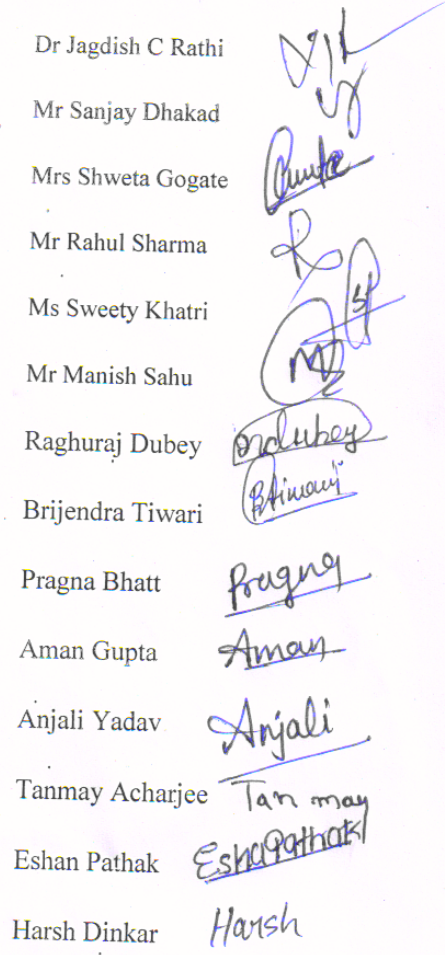 Dr Jagdish C Rathi
Mr Sanjay Dhakad
Mrs Shweta Gogate
Mr Rahul Sharma
Ms Sweety Khatri
Mr Manish Sahu
Raghuraj Dubey Dubey
Brijendra Tiwari
Pragna Bhatt Pragna
Aman Gupta Aman
Anjali Yadav Anjali
Tanmay Acharjee Tanmay
Eshan Pathak EshaPathak
Harsh Dinkar Harsh